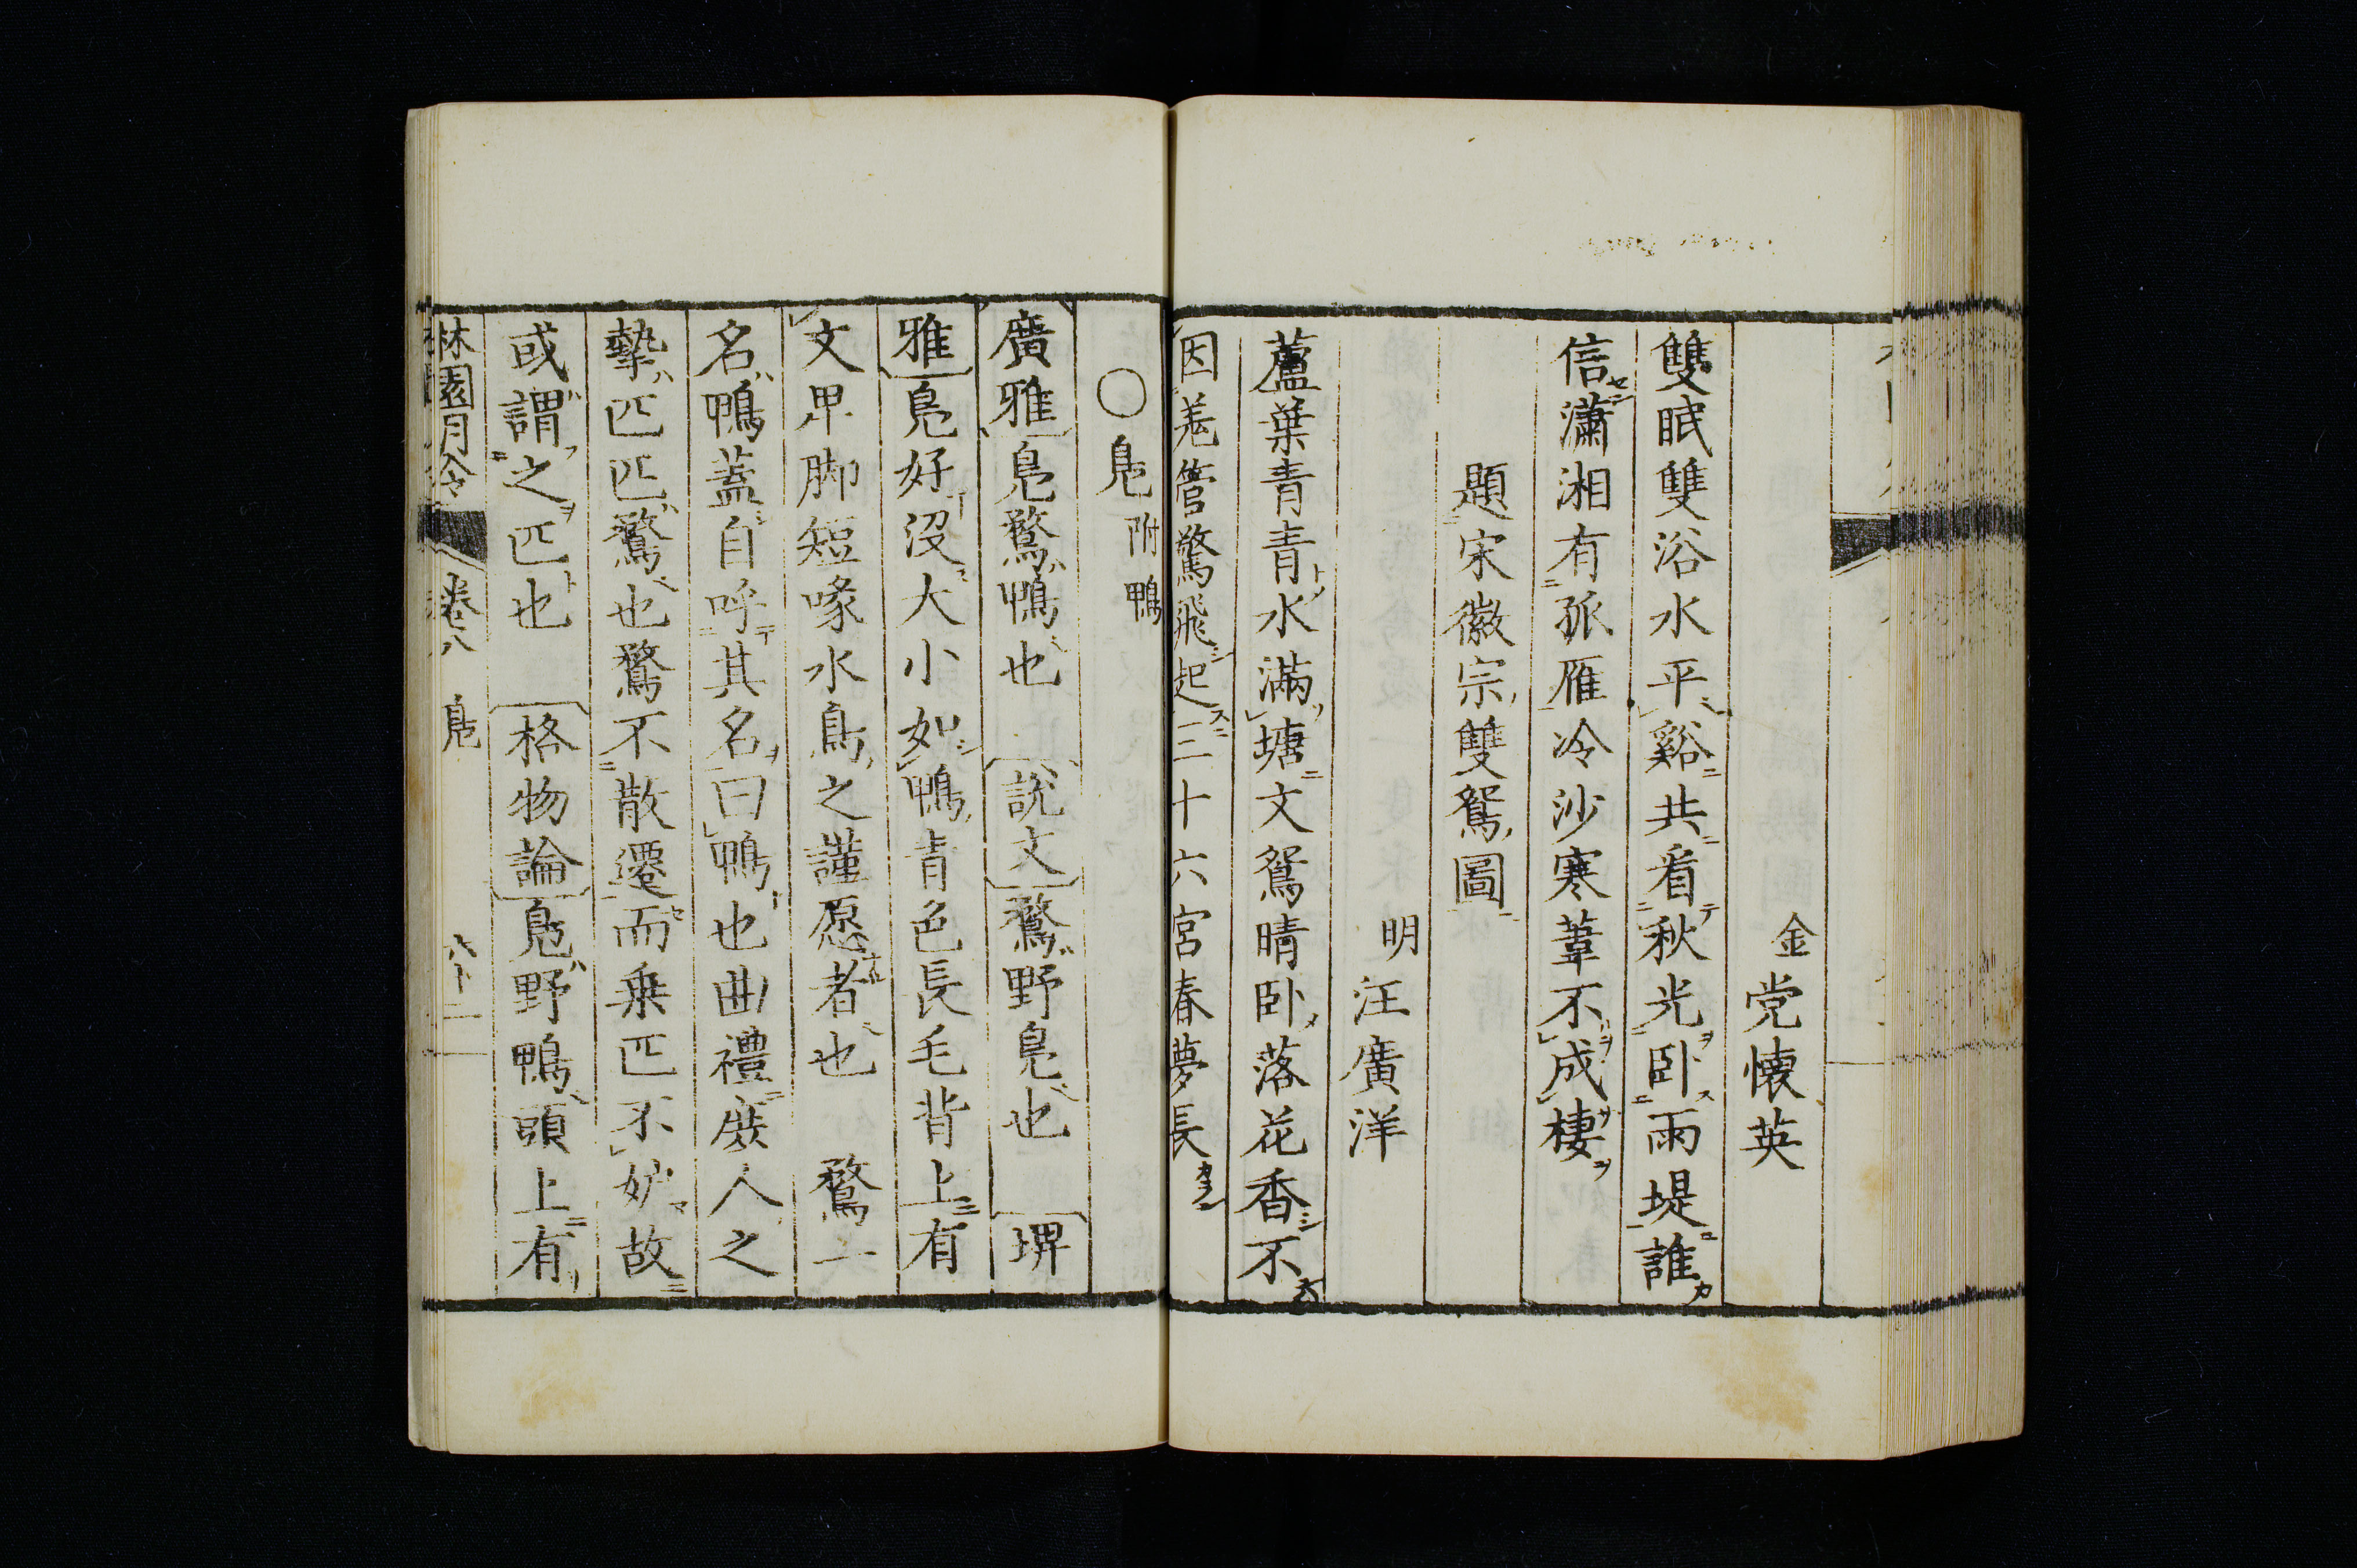 金 党懷英
雙眠雙浴水平谿共看秋光卧雨堤誰
信瀟湘有孤雁冷沙寒葦不成棲
題宋徽宗雙鴛圖
明 汪廣洋
蘆葉青青水滿塘文鴛晴卧落花香不
因羌管驚飛起三十六宮春夢長
〇鳬 附鴨
廣雅鳬鶩鴨也 說文鶩野鳬也 埤
雅鳬好没大小如鴨青色長毛背上有
文卑脚短喙水鳥之謹愿者也 鶩一
名鴨蓋自呼其名曰鴨也曲禮庶人之
摯匹匹鶩也鶩不散遷而乗匹不妒故
或謂之匹也 格物論鳬野鴨頭上有
林園月令 卷八 鳬 八十二